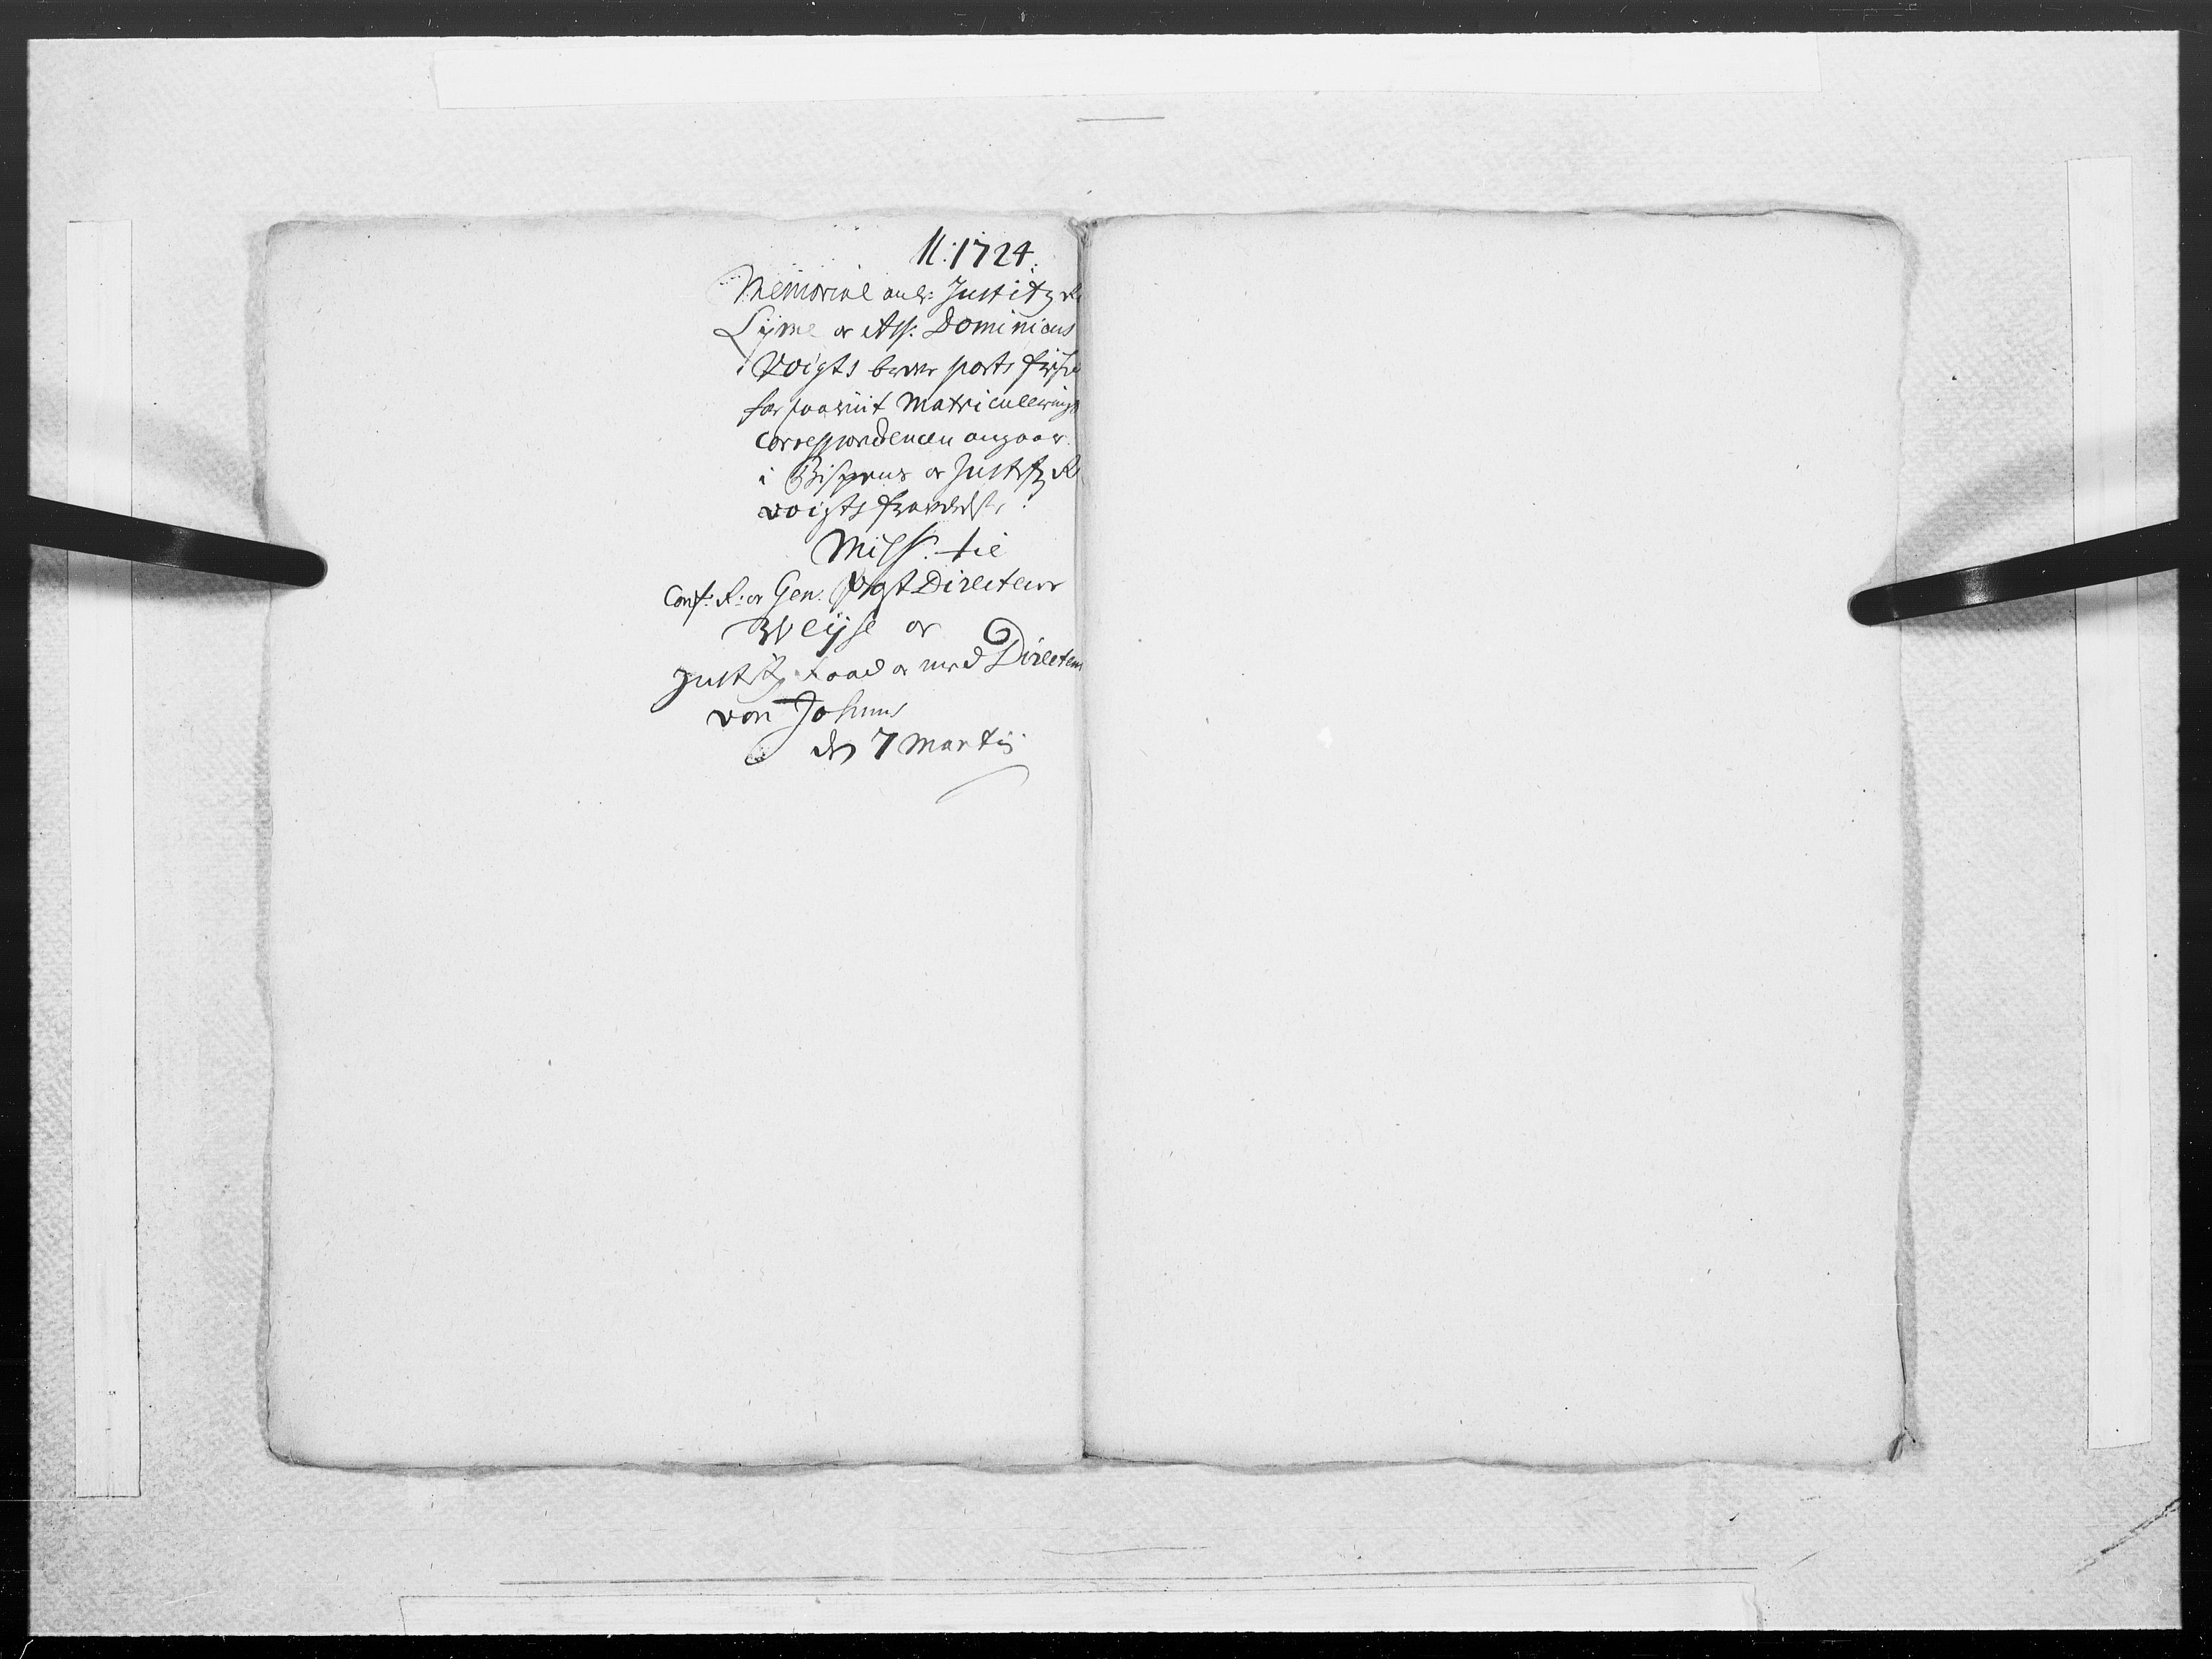 11. 1724.
Memorial anl: Justitz R
Lÿme og Ass: Dominicus
Voigts
for saavit Matriculerings
Correspondencen angaar
i Bispens og Justitz R
voigts
Miss. til
Conf: R: og Gen. Post Directeur
Weÿse og
Justitz Raad og med Directeur
von Johnn
den 7 Martij